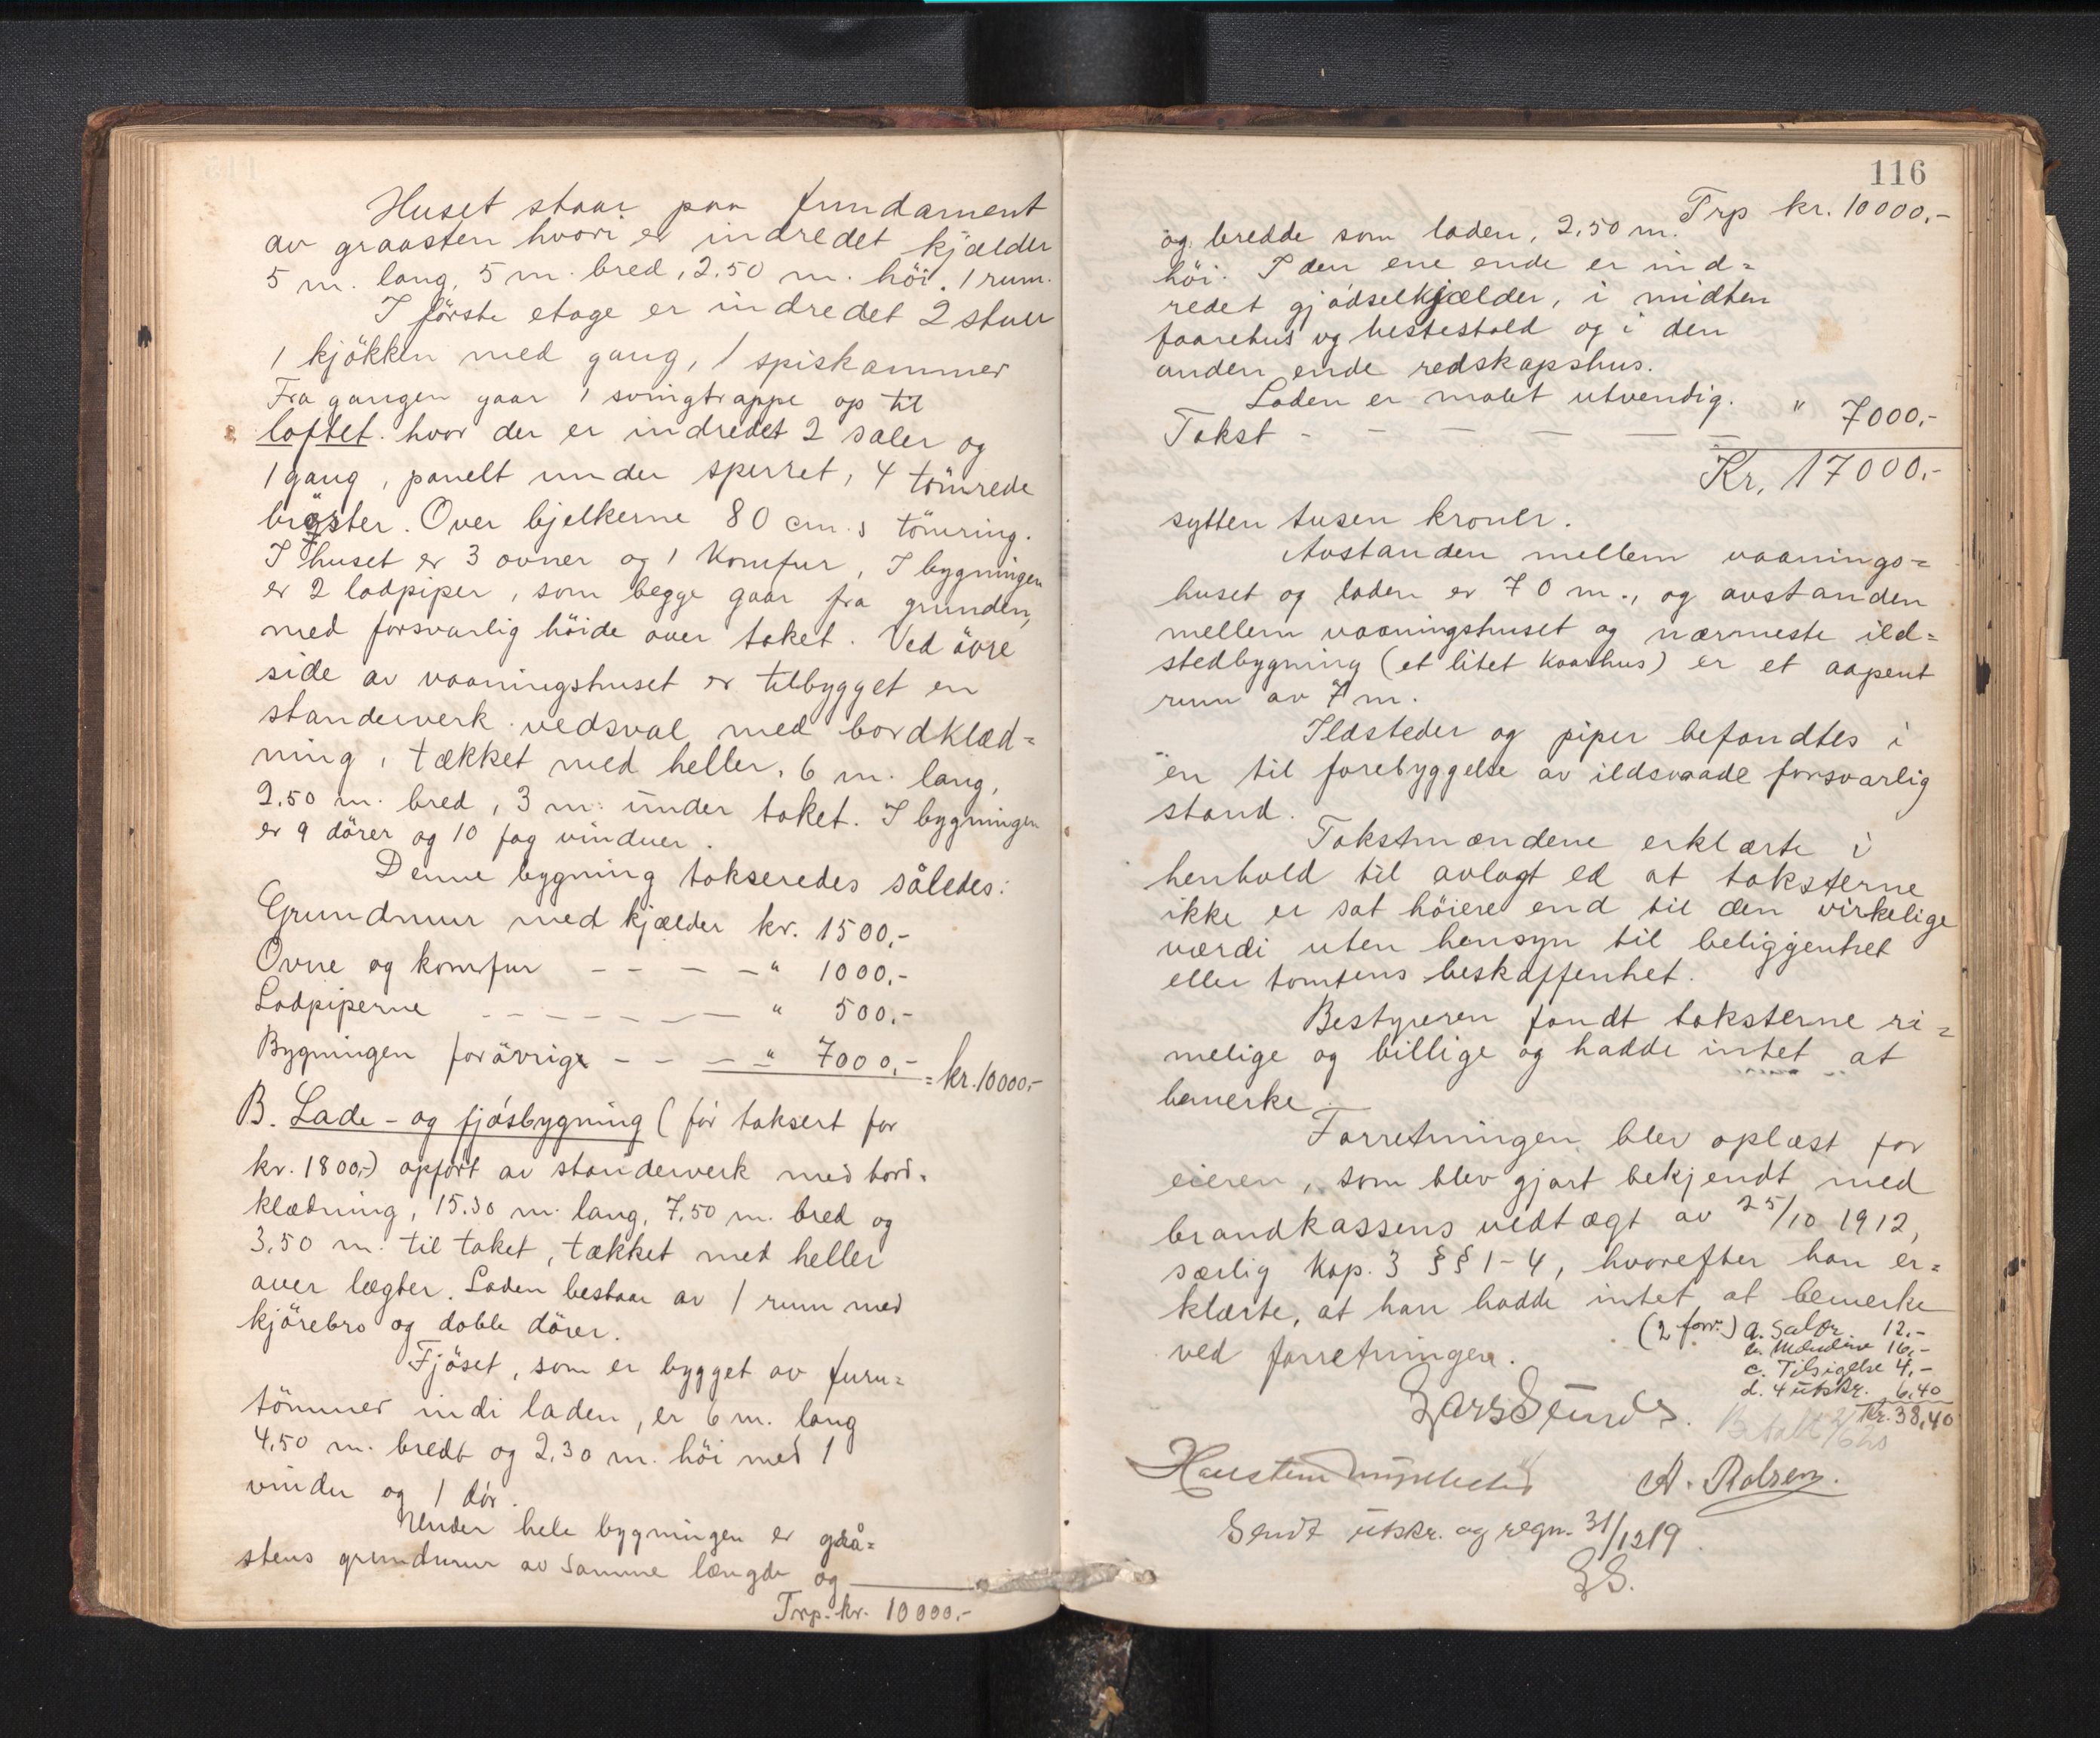 Huset staar paa fundament
av graasten hvori er indredet kjælder
5 m. lang, 5 m. bred, 2.50 m. höi. 1 rum.
I förste etage er indredet 2 stuer
1 kjökken med gang, 1 spiskammer
Fra gangen gaar 1 svingtrappe op til
loftet. hvor der er indredet 2 saler og
1 gang, panelt under sperret, 4 tömrede
bröster. Over bjelkerne 80 cm.s tömring.
I huset er 3 ovner og 1 Komfur, I bygningen
er 2 ladpiper, som begge gaar fra grunden,
med forsvarlig höide over taket. Ved övre
side av vaaningshuset er tilbygget en
standerverk vedsval med bordklæd=
ning, tækket med heller, 6 m. lang,
2.50 m. bred, 3 m. under taket. I bygningen
er 9 dörer og 10 fag vinduer.
Denne bygning takseredes således:
Grundmur med kjælder kr. 1500,-
Ovne og komfur - - - - " 1000,-
Ladpiperne - - - - - - " 500,-
Bygningen forövrige - - - " 7000,- = kr. 10000,-
B. Lade - og fjösbygning (för taksert for
kr. 1800,-) opfört av standerverk med bord-
klædning, 15.30 m. lang, 7,50 m. bred og
3,50 m. til taket, tækket med heller
over lægter. Laden bestaar av 1 rum med
kjörebro og doble dörer.
Fjöset, som er bygget av furu=
tömmer indi laden, er 6 m. lang
4,50 m. bredt og 2,30 m. höi med 1
vindu og 1 dör.
Under hele bygningen er grå=
stens grundmur av samme længde og
Trp. kr. 10000,-
116
Trp kr. 10000,-
og bredde som laden, 2,50 m.
höi. I den ene ende er ind=
redet gjödselkjælder, i midten
faarehus og hestestald og i den
anden ende redskapshus.
Laden er malet utvendig.
Takst - - - - - - " 7000,-
Kr. 17000,-
sytten tusen kroner.
Avstanden mellem vaanings=
huset og laden er 70 m., og avstanden
mellem vaaningshuset og nærmeste ild=
stedbygning (et litet kaarhus) er et aapent
rum av 7 m.
Ildsteder og piper befandtes i
en til forebyggelse av ildsvaade forsvarlig
stand.
Takstmændene erklærte i
henhold til avlagt ed at taksterne
ikke er sat höiere end til den virkelige
værdi uten hensyn til beliggenhet
eller tomtens beskaffenhet.
Bestyreren fandt taksterne ri=
melige og billige og hadde intet at
bemerke.
Forretningen blev oplæst for
eieren, som blev gjort bekjendt med
brandkassens vedtægt av 25/10 1912,
særlig Kap. 3 §§ 1-4, hvorefter han er=
klærte, at han hadde intet at bemerke
ved forretningen.
(2 forr.) a. Salær 12.-
b. Mændene 16,-
c. Tilsigelse 4,-
d. 4 utskr. 6,40
Kr. 38,40
Betalt
A. Ralsen.
Sendt utskr. og regn. 31/12 19.
LS.